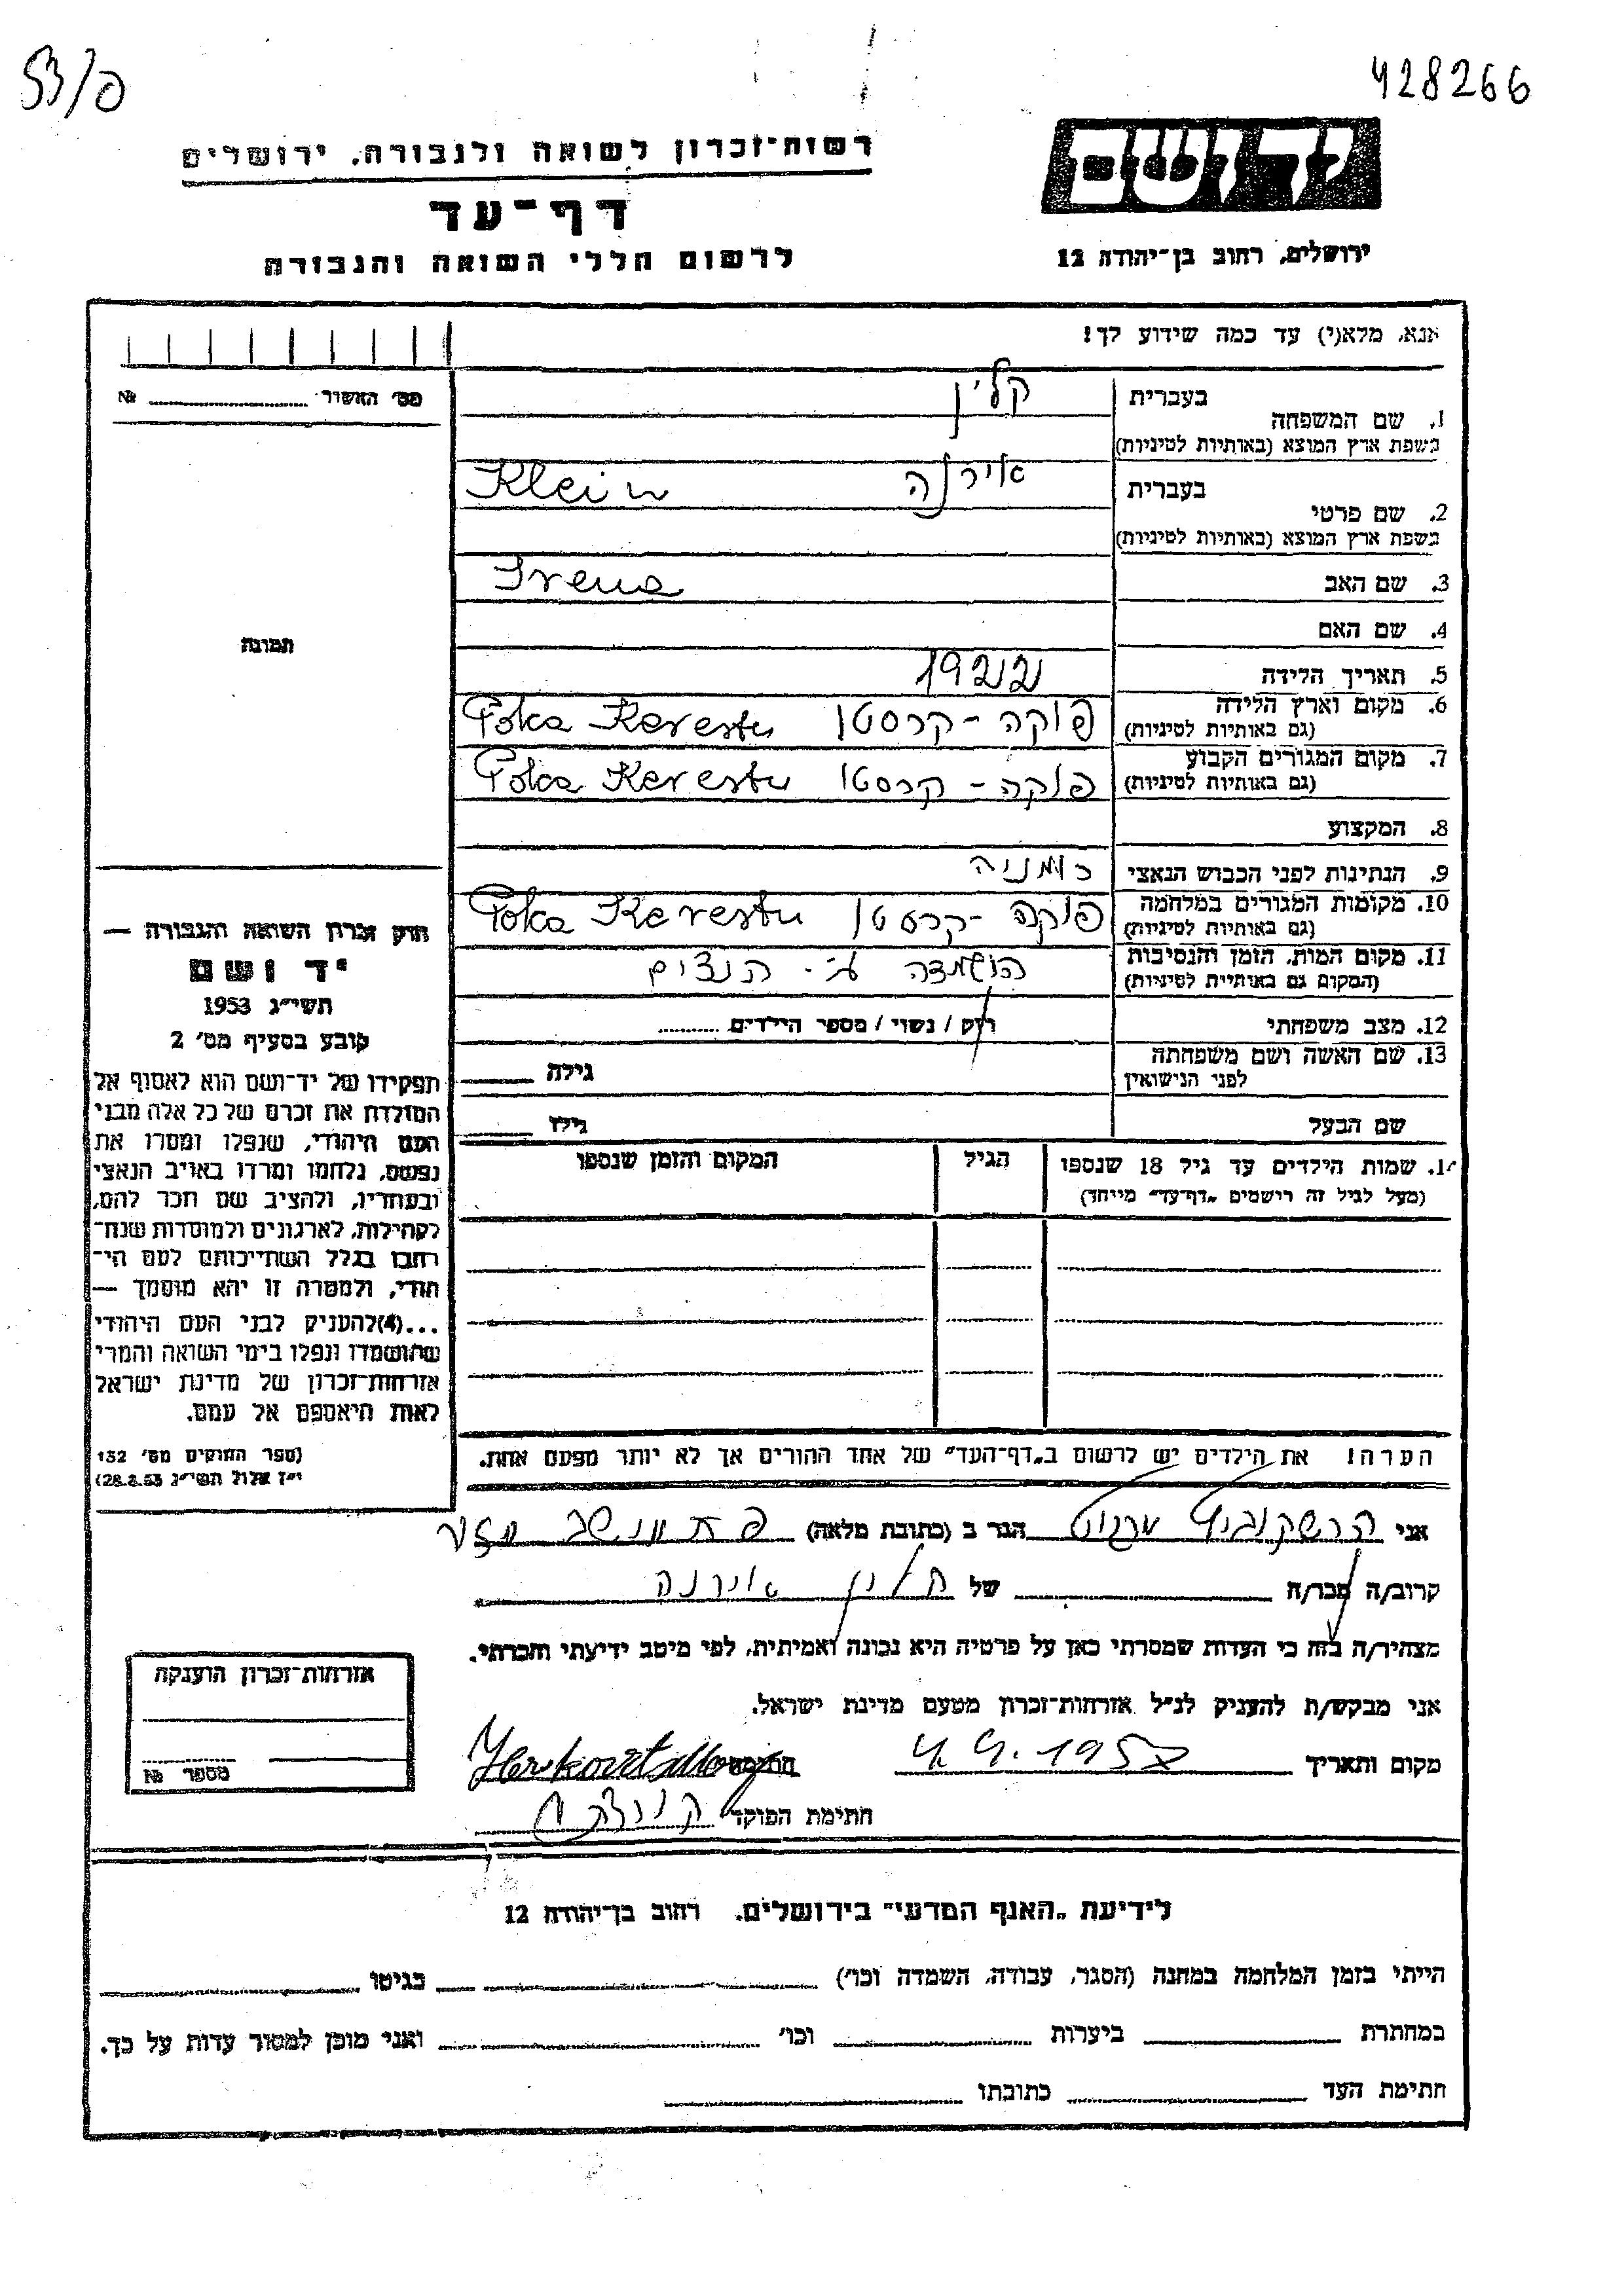 53/פ
428266
יד ושם
רשות־זכרון לשואה ולגבורה, ירושלים
דף־עד
לרשום חללי השואה והגבורה
ירושלים, רחוב בן־יהודה 12
אנא, מלא(י) עד כמה שידוע לך!
מס׳ האשור № 
בעברית קלין
1. שם המשפחה
בשפת ארץ המוצא (באותיות לטיניות)
Klein
בעברית אירנה
2. שם פרטי
בשפת ארץ המוצא (באותיות לטיניות)
3. שם האב Irena
4. שם האם
5. תאריך הלידה 1922
6. מקום וארץ הלידה פוקה-קרסטו Poka Kerestu
(גם באותיות לטיניות)
7. מקום המגורים הקבוע פוקה-קרסטו Poka Kerestu
(גם באותיות לטיניות)
8. המקצוע
9. הנתינות לפני הכבוש הנאצי רומניה
10. מקומות המגורים במלחמה פוקה-קרסטו Poka Kerestu
(גם באותיות לטיניות)
11. מקום המות, הזמן והנסיבות הושמדה ע״י הנצים
(המקום גם באותיות לטיניות)
12. מצב משפחתי רוק / נשוי / מספר הילדים
13. שם האשה ושם משפחתה
לפני הנישואין גילה
שם הבעל גילו
14. שמות הילדים עד גיל 18 שנספו הגיל המקום והזמן שנספו
(מעל לגיל זה רישמים „דף־עד״ מייחד)
תמונה
חוק זכרון השואה והגבורה —
יד ושם
תשי״ג 1953
קובע בסעיף מס׳ 2
תפקידו של יד־ושם הוא לאסוף אל
המולדת את זכרם של כל אלה מבני
העם היהודי, שנפלו ומסרו את
נפשם, נלחמו ומרדו באויב הנאצי
ובעוזריו, ולהציב שם וזכר להם,
לקהילות, לארגונים ולמוסדות שנח־
רבו בגלל השתייכותם לעם הי־
הודי, ולמטרה זו יהא מוסמך —
...(4)להעניק לבני העם היהודי
שהושמדו ונפלו בימי השואה והמרי
אזרחות־זכרון של מדינת ישראל
לאות היאספם אל עמם.
(ספר החוקים מס׳ 132
י״ז אלול תשי״ג 28.8.53)
הערה! את הילדים יש לרשום ב„דף־העד״ של אחד ההורים אך לא יותר מפעם אחת.
אני הרשקוביץ הגר ב (כתובת מלאה)
קרוב/ה חבר/ה של קלין אירנה
מצהיר/ה בזה כי העדות שמסרתי כאן על פרטיה היא נכונה ואמיתית, לפי מיטב ידיעתי והכרתי.
אני מבקש/ת להעניק לנ״ל אזרחות־זכרון מטעם מדינת ישראל.
מקום ותאריך 4.9.1957 חתימה
חתימת הפוקד
אזרחות־זכרון הוענקה
מספר №
לידיעת „האגף המדעי״ בירושלים, רחוב בן־יהודה 12
הייתי בזמן המלחמה במחנה (הסגר, עבודה, השמדה וכו׳) בגיטו
במחתרת ביערות וכו׳ ואני מוכן למסור עדות על כך.
חתימת העד כתובתו